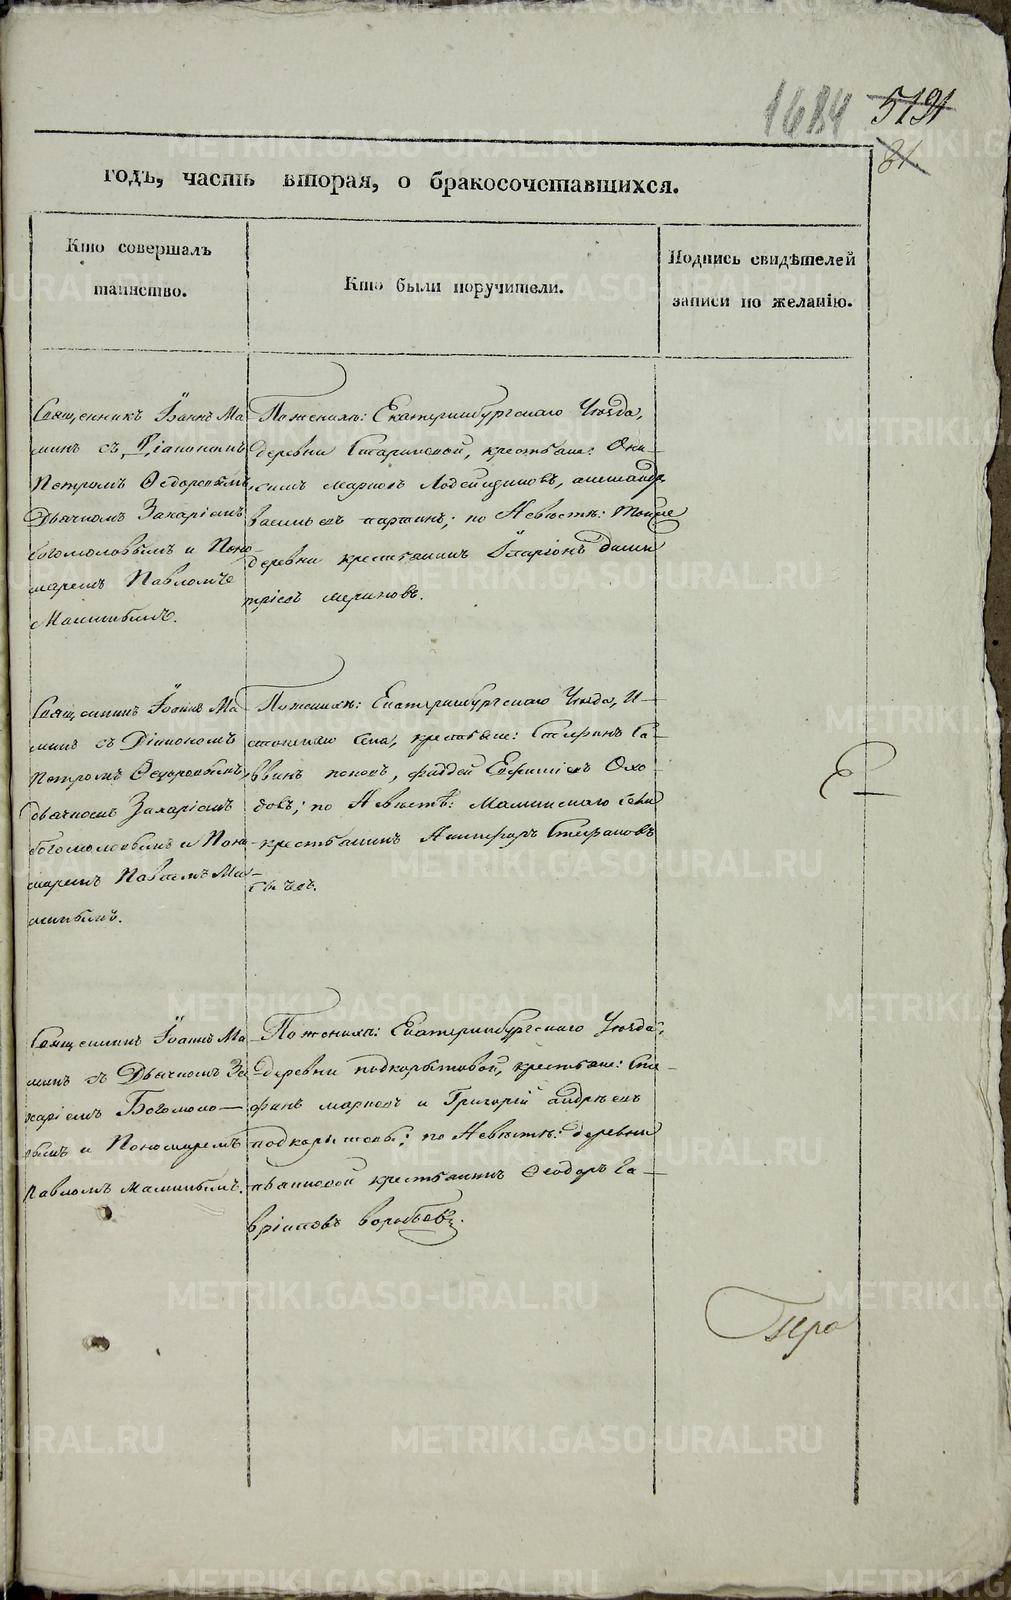 1684 5191
81.
годъ, часть вторая, о бракосочетавшихся.
Кто совершалъ
таинство.
Кто были поручители.
Подпись свидѣтелей
записи по желанію.
Священникъ Іоаннъ Ма-
минъ съ Діакономъ
Петромъ Ѳедоровымъ
Дьячкомъ Захаріемъ
Богомоловымъ и Поно-
маремъ Павломъ
Маминымъ.
По женихѣ: Екатеринбургскаго Уѣзда,
деревни крестьяне:
Марковъ
Васильевъ по Невѣстѣ: Тойже
деревни крестьянинъ Иларіонъ Дими
тріевъ
Священникъ Іоаннъ Ма
минъ съ Діакономъ
Петромъ Ѳедоровымъ
Дьячкомъ Захаріемъ
Богомоловымъ и Поно
маремъ Павломъ Ма-
минымъ.
По женихѣ: Екатеринбургскаго Уѣзда, И-
стокскаго Села, крестьяне: Стефанъ Са-
ввинъ Поповъ, Фаддей Евфиміевъ
по Невѣстѣ: Маминскаго Села
крестьянинъ Стефановъ
Сычевъ.
Священникъ Іоаннъ Ма
минъ съ Дьячкомъ За
харіемъ Богомоло-
вымъ и Пономаремъ
Павломъ Маминымъ.
По женихѣ: Екатеринбургскаго Уѣзда,
деревни Подкорытовой, крестьяне: Сте-
фанъ Марковъ и Григорій Андреевъ
Подкорытовы; по Невѣстѣ: деревни
крестьянинъ Ѳеодоръ Га-
вріиловъ Воробьевъ.
METRIKI.GASO-URAL.RU